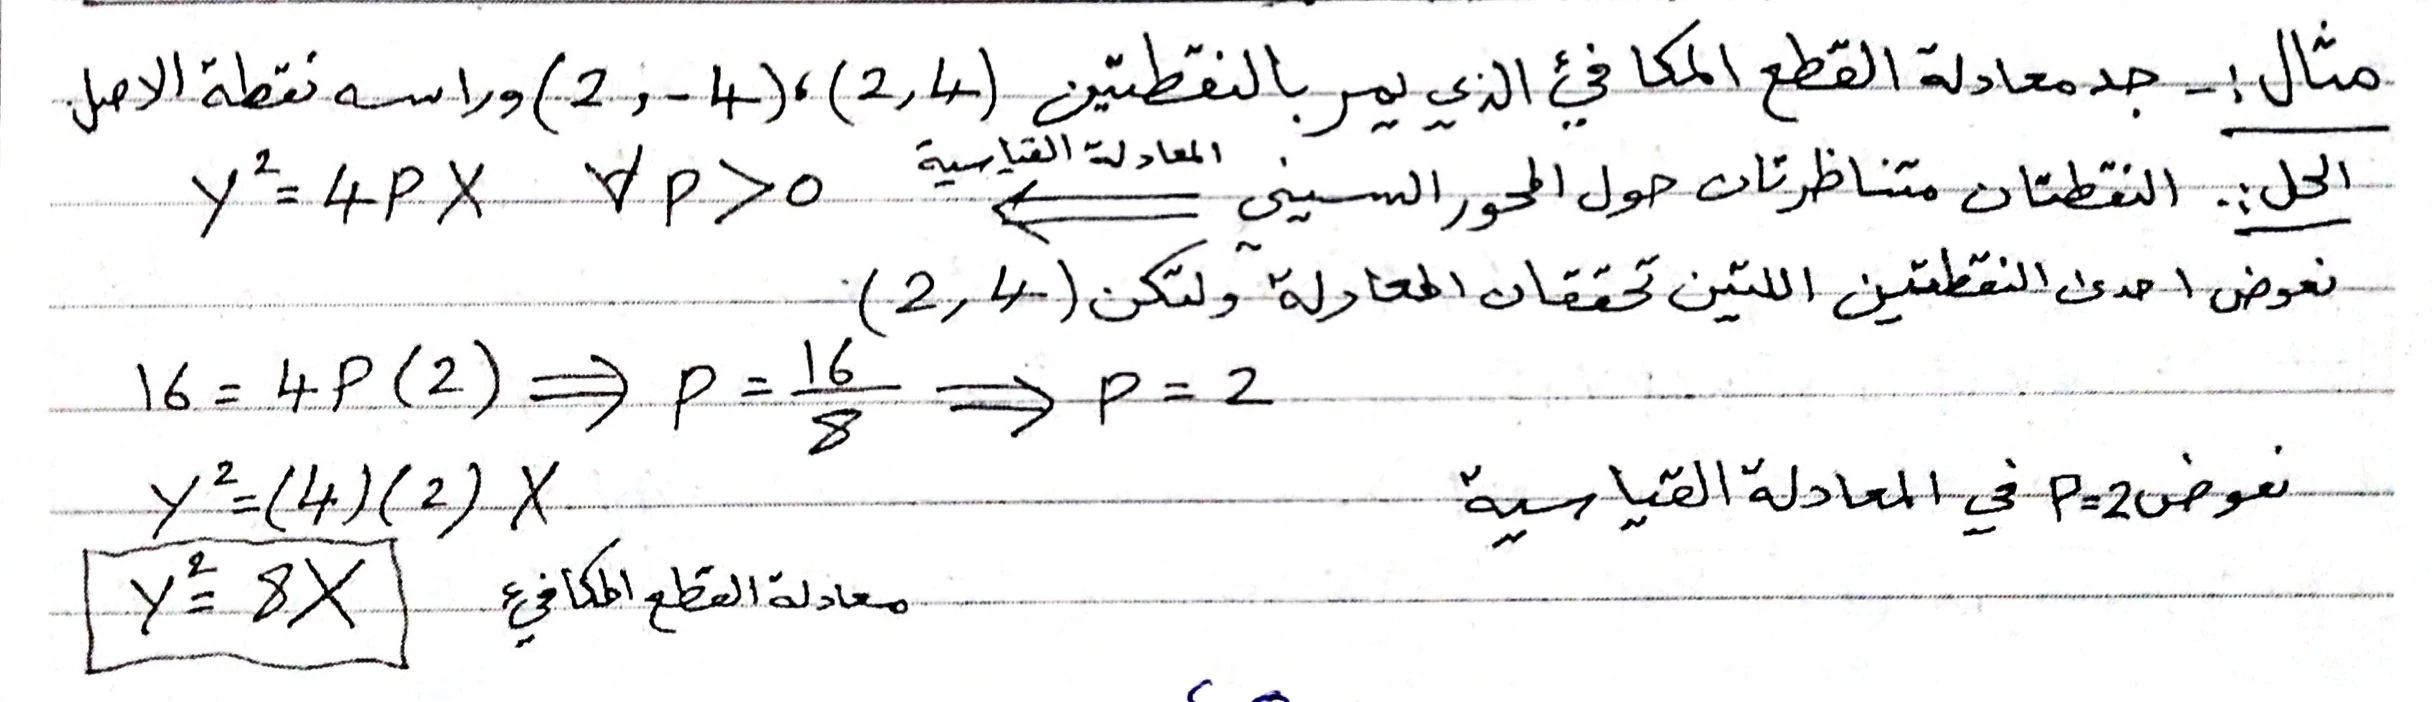 مثال :- جد معادلة القطع المكافئ الذي يمر بالنقطتين (2,4)، (2,-4) وراسه نقطة الاصل
الحل :. النقطتان متناظرتان حول المحور السيني المعادلة القياسية ⇐ y² = 4PX ∀ P > 0
نعوض احدى النقطتين اللتين تحققان المعادلة ولتكن (2,4)
16 = 4P(2) ⇒ P = 16/8 ⇒ P = 2
نعوض P=2 في المعادلة القياسية y² = (4)(2) X
y² = 8X معادلة القطع المكافئ